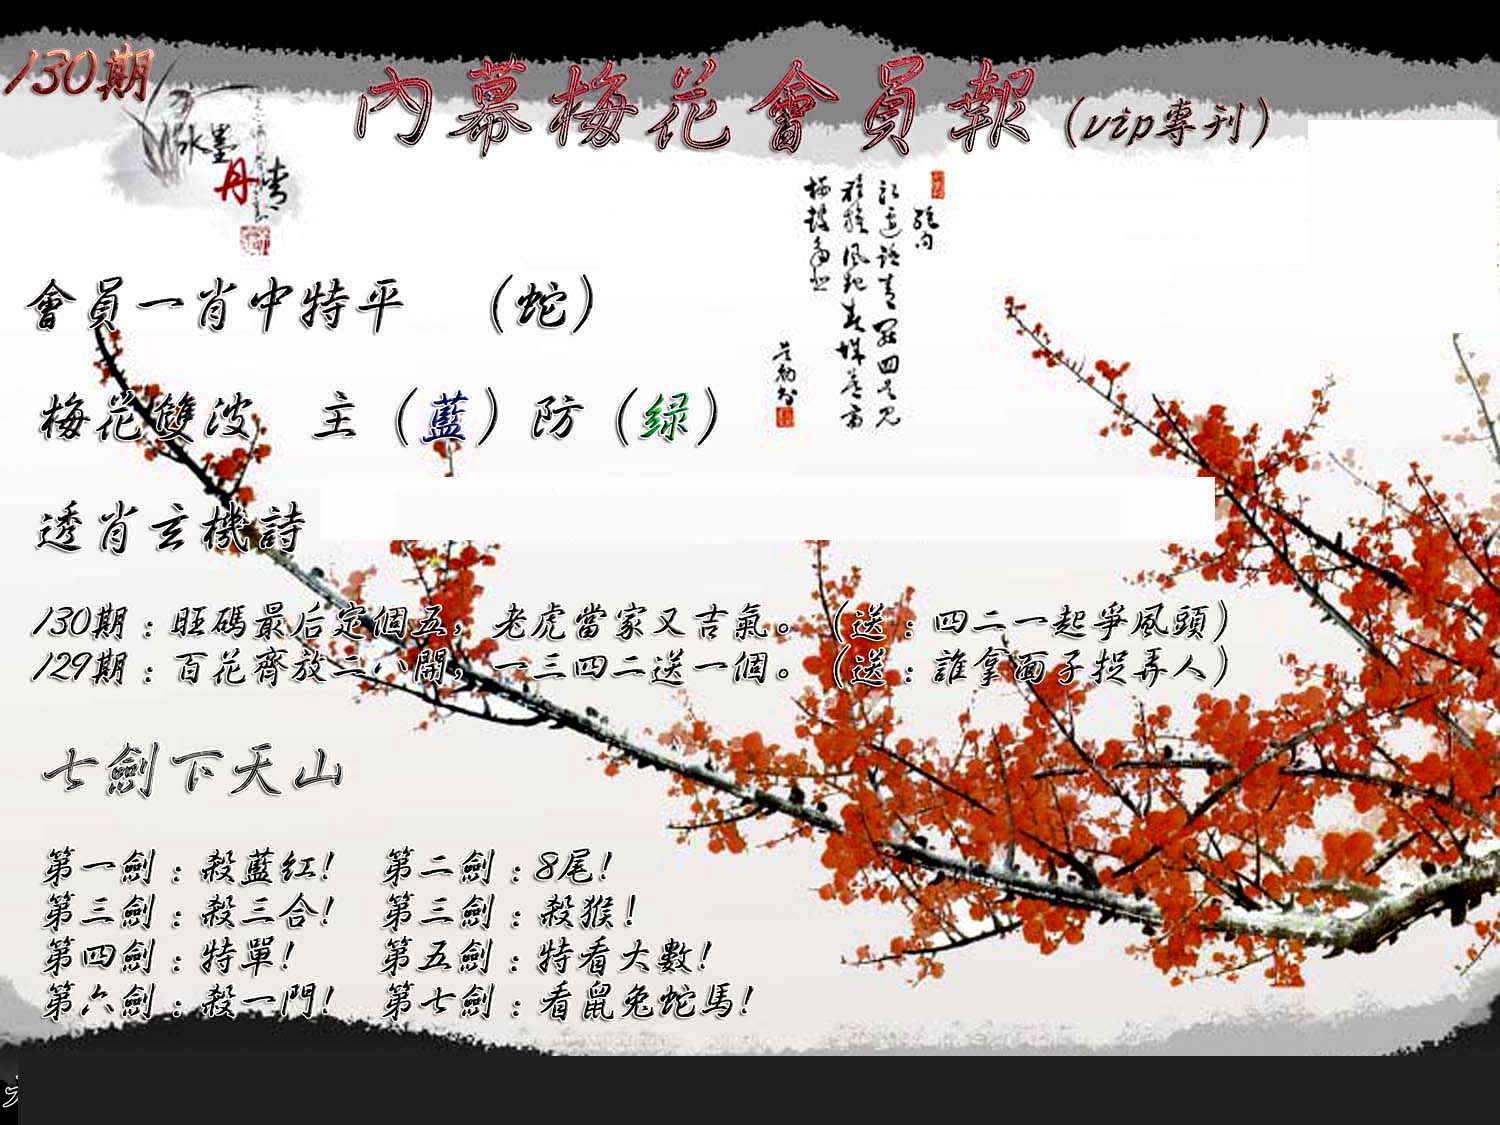 130期
內幕梅花會員報(vip專刊)
水墨
丹青
會員一肖中特平 (蛇)
梅花雙波 主(藍)防(绿)
透肖玄機詩
130期:旺碼最后定個五,老虎當家又吉氣。(送:四二一起爭風頭)
129期:百花齊放二八開,一三四二送一個。(送:誰拿面子捉弄人)
七劍下天山
第一劍:殺藍红! 第二劍:8尾!
第三劍:殺三合! 第三劍:殺猴!
第四劍:特單! 第五劍:特看大數!
第六劍:殺一門! 第七劍:看鼠兔蛇馬!